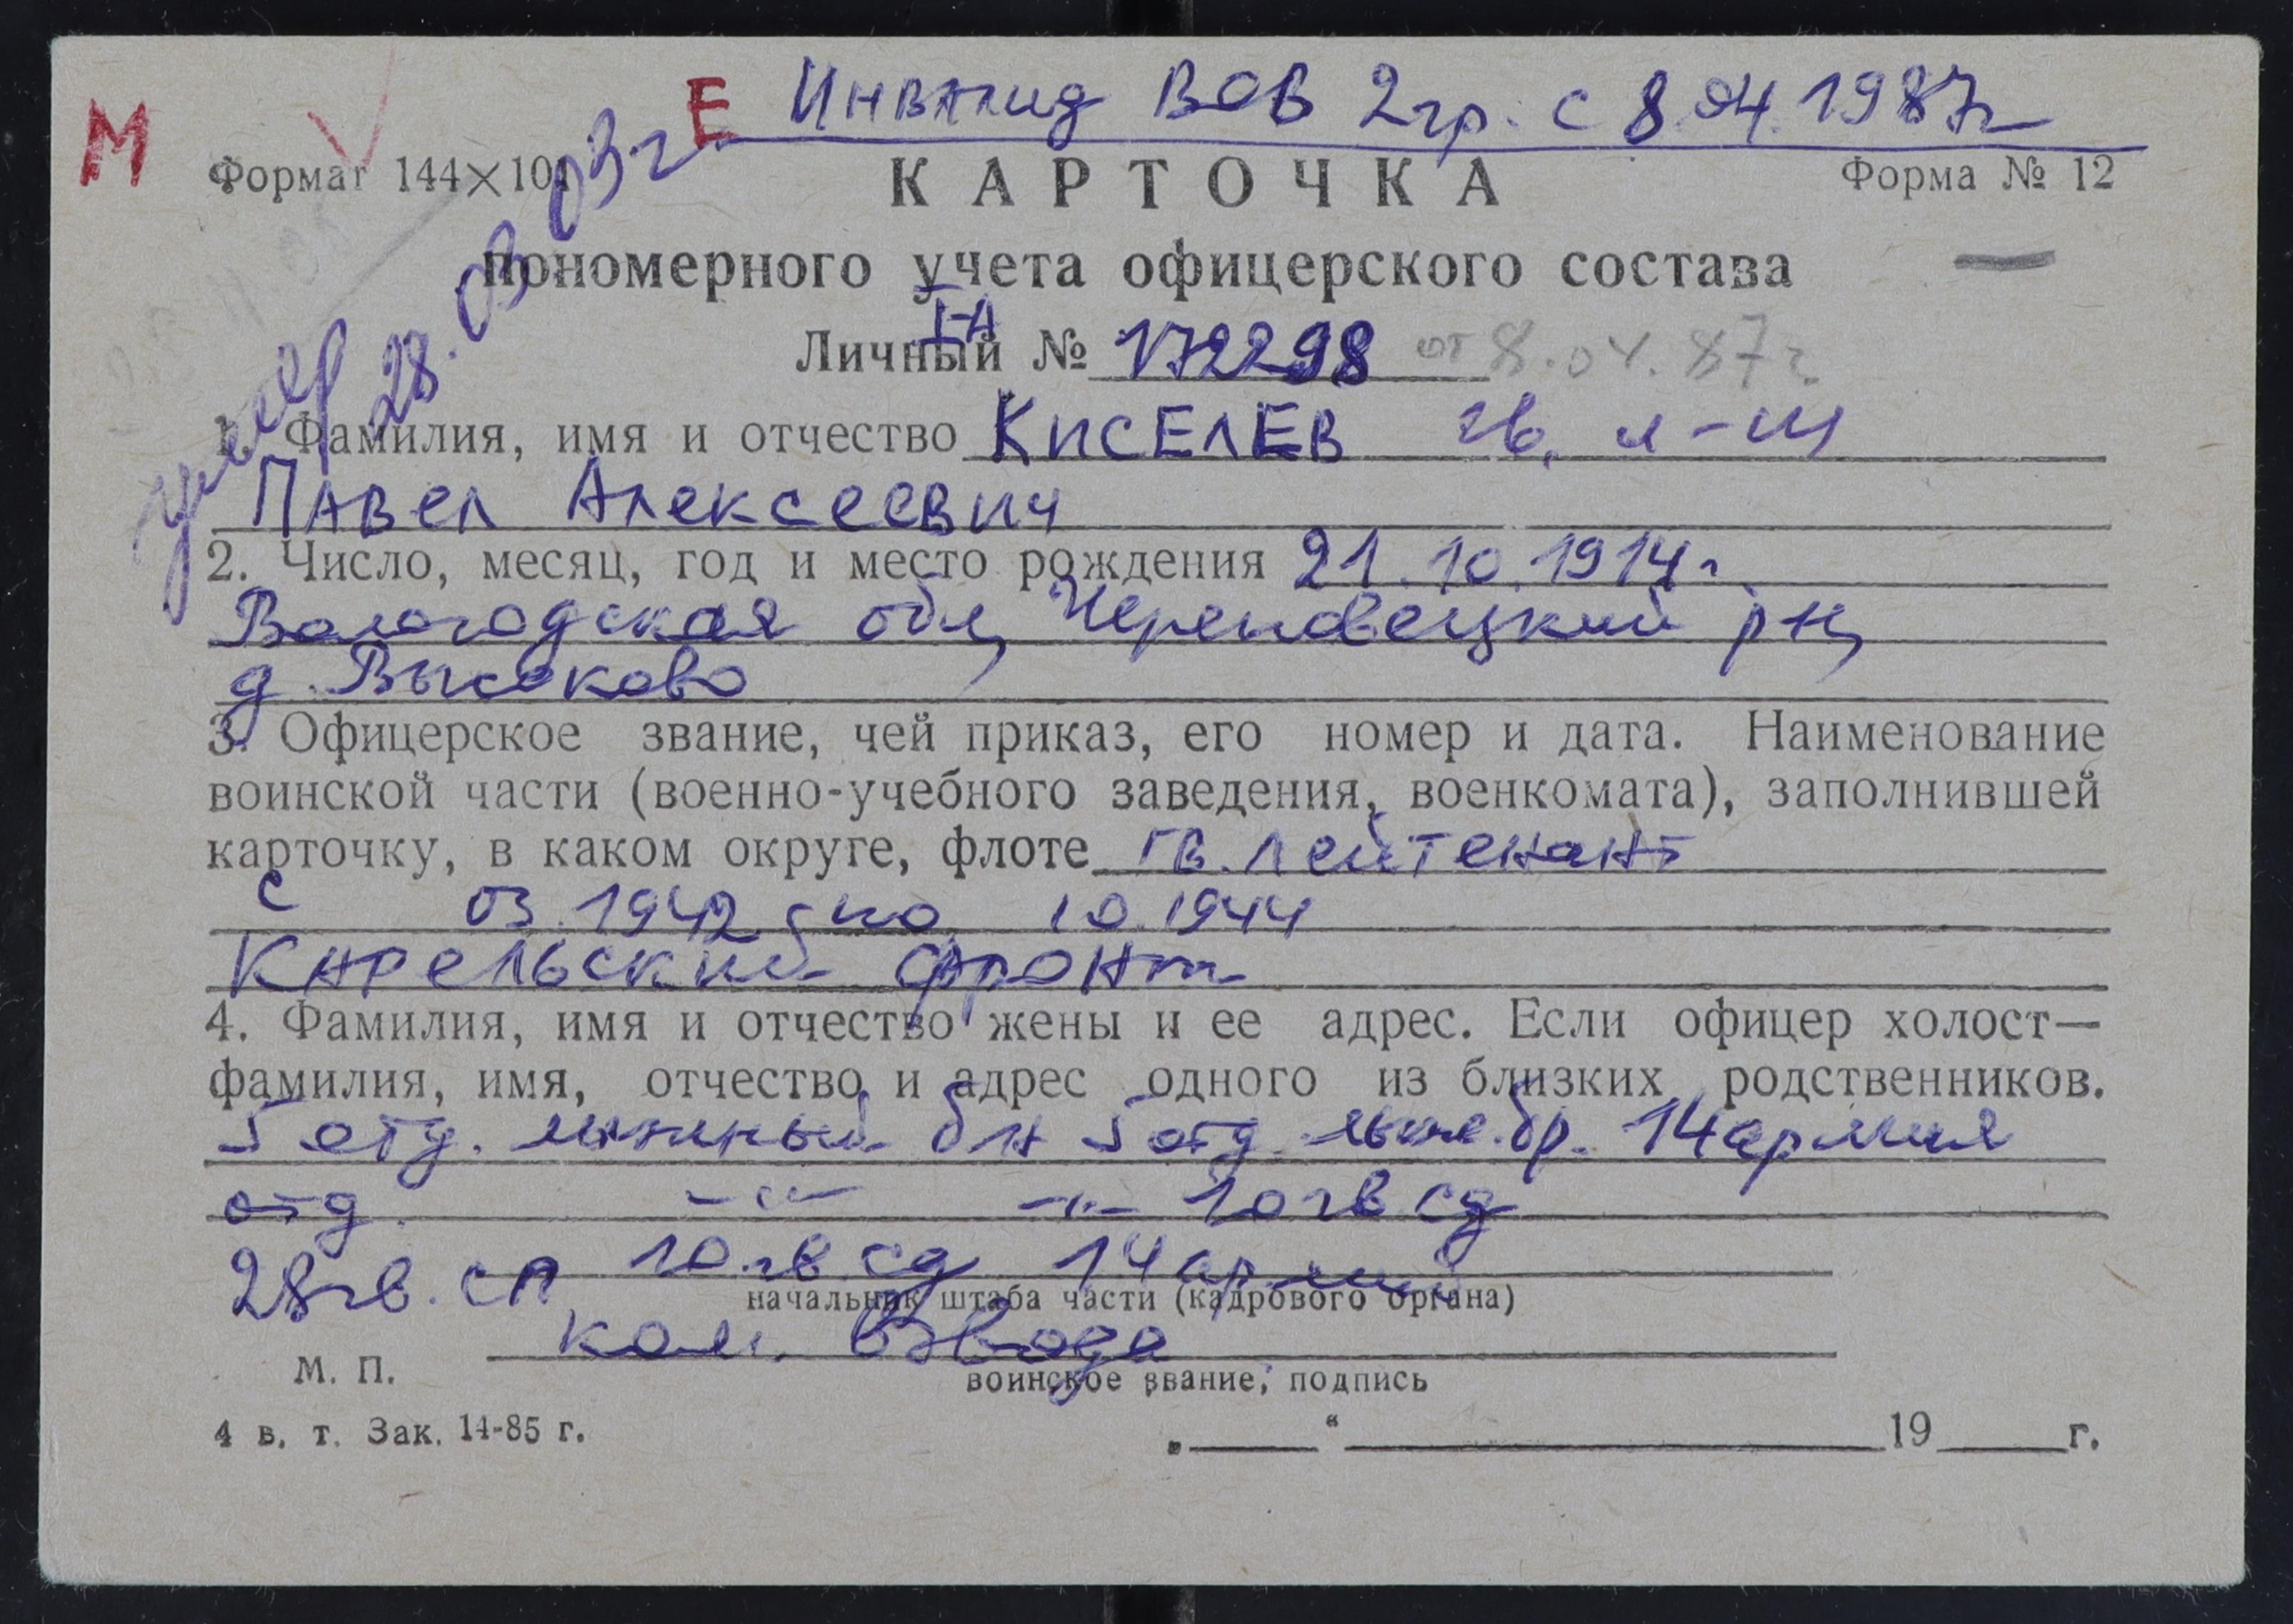 М Е Инвалид ВОВ 2 гр. с 8.04.1987г
Формат 144×101
Форма № 12
КАРТОЧКА
пономерного учета офицерского состава
I-А
Личный № 172298 от 8.04.87г.
умер 28.03.03г.
1. Фамилия, имя и отчество КИСЕЛЕВ гв. л-т
Павел Алексеевич
2. Число, месяц, год и место рождения 21.10.1914г.
Вологодская обл, Череповецкий р-н,
д. Высоково
3. Офицерское звание, чей приказ, его номер и дата. Наименование
воинской части (военно-учебного заведения, военкомата), заполнившей
карточку, в каком округе, флоте гв. лейтенант
с 03.1942 по 10.1944
Карельский фронт
4. Фамилия, имя и отчество жены и ее адрес. Если офицер холост—
фамилия, имя, отчество и адрес одного из близких родственников.
5 отд. лыжный б-н 5 отд. лыж. бр. 14 армия
отд. -"- -"- 10 гв сд
28 гв. сп 10 гв сд 14 армии
начальник штаба части (кадрового органа)
ком. взвода
М. П.
воинское звание, подпись
4 в. т. Зак. 14-85 г.
„ “ 19 г.